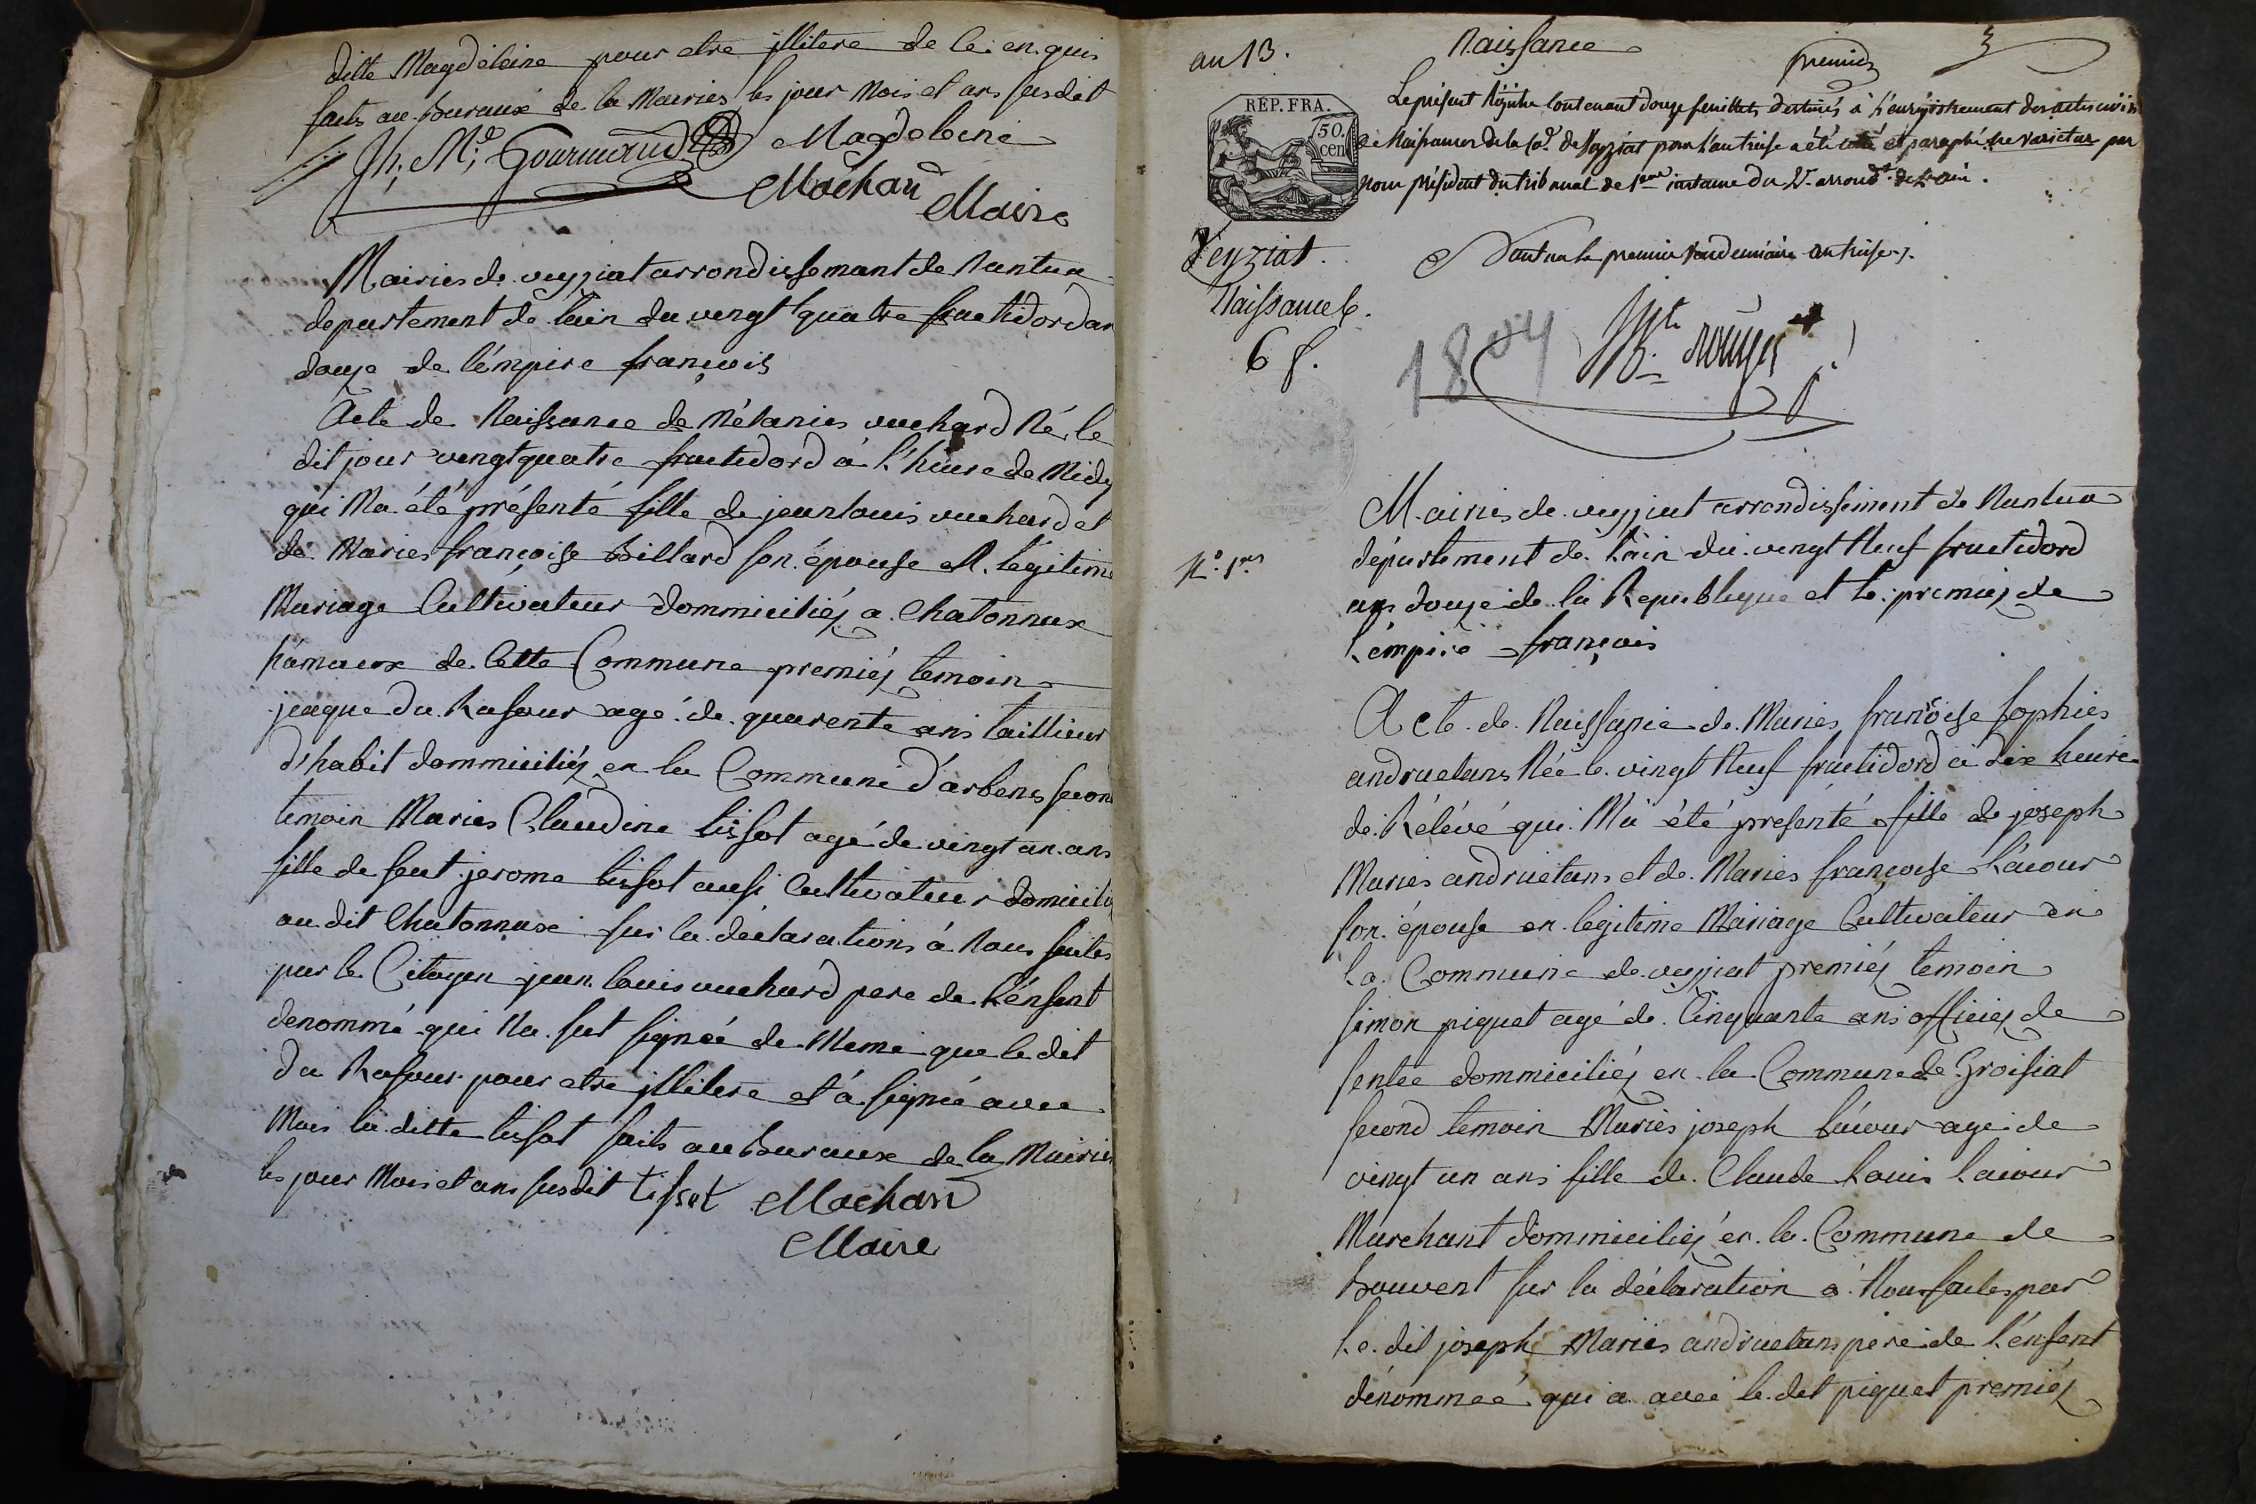 ditte Magdeleine pour etre jllitere de ce en quis
faits au Buraux de la Mairies les jour Mois et ans susdit
Jh. Md. Gourmand Magdeleine
Mochard
Maire
Mairies de veyziat arrondissemant de Nantua
departement de lain du vengt quatre fructidord an
douze de l'émpire françois
Acte de Naissance de Mélanies vuchard Né le
dit jour vengt quatre fructidord à l'heure de Midy
qui Ma été présenté fille de jean louis vuchard et
de Maries françoise Billard son épouse en légitime
Mariage Cultivateur dommiciliéz a Chatonnax
hámaux de Cette Commune premiéz temoin
jeaque Du Rafour agé de quarente ans taillieur
d'habit dommiciliéz en la Commune d'arbens second
temoin Maries Claudine tissot agé de vingt un ans
fille de feut jerome tissot aussi Cultivateur domicilié
au dit Chatonnax sur la déclarations á Nous faites
par le Citoyen jean louis vuchard pere de l'énfent
denommé qui Na sut signée de Meme que le dit
Du Rafour pour etre jllitere et á signée avec
Mois la ditte tissot faits au Buraux de la Mairies
les jour Mois et ans susdit tissot Mochard
Maire
au 13. Naissance premier
REP. FRA.
50.
cen
Le présent Régistre Contenant douze feuillets destinés à l'enregistrement des actes civils
de Naissances de la Ce. de Veyziat pour l'an treise a été coté et paraphé ne varietur par
nous président du tribunal de 1ere instance du 2e. arrondt. de l'ain.
Veyziat.
A Nantua le premier vendemiaire an treise.
Naissances.
6 f.
1804
rouyer
Mairies de veyziat arrondissement de Nantua
département de lain du vengt Neuf fructidord
ans douze de la Republique et le premiéz de
l'émpire françois
No. 1er
Acte de Naissance de Maries françoise sophies
andruetans Née le vingt Neuf fructidord à dix heure
de Rélévé qui Má été présenté fille de joseph
Maries andruetans et de Maries françoise Lacour
son épouse en legitime Mariage Cultivateur en
la Commune de veyziat premiéz temoin
simon piquet agé de Cinquante ans officiéz de
sentée dommiciliéz en la Commune de Groisiat
second temoin Maries joseph Lácour agé de
vingt un ans fille de Claude Louis Lacour
Marchant dommiciliéz en la Commune de
Bouvent sur la déclaration á Nous faites par
le dit joseph Maries andruetans pere de l'énfent
dénommeé qui a avec le dit piquet premiéz